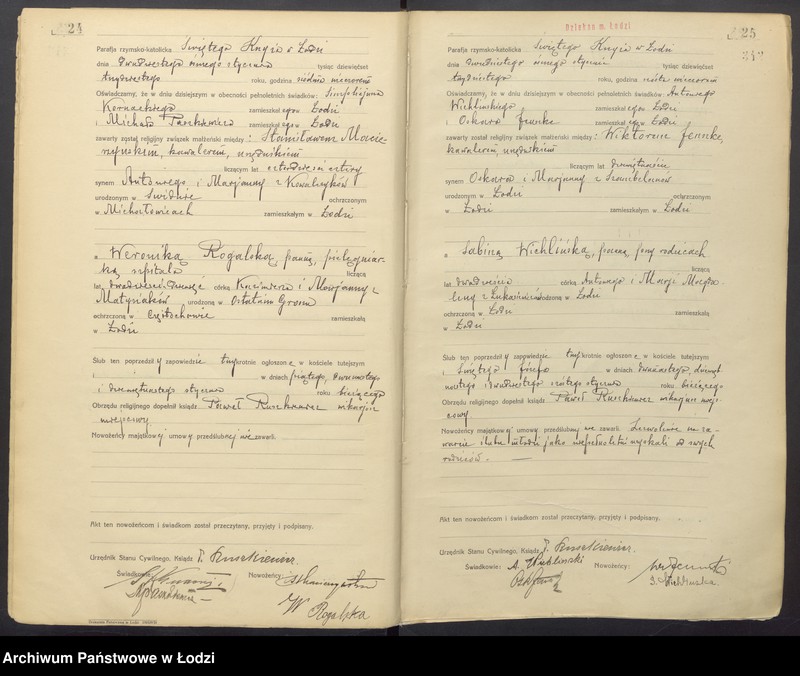 24
Parafja rzymsko-katolicka Świętego Krzyża w Łodzi
dnia dwudziestego stycznia tysiąc dziewięćset
trzydziestego roku, godzina siódma wieczorem
Oświadczamy, że w dniu dzisiejszym w obecności pełnoletnich świadków:
Kornackiego zamieszkałego w Łodzi
i Michała zamieszkałego w Łodzi
zawarty został religijny związek małżeński między: Stanisławem
kawalerem, urzędnikiem
liczącym lat czterdzieści cztery
synem Antoniego i Marjanny z Kowalczyków
urodzonym w ochrzczonym
w Michałowicach zamieszkałym w Łodzi
a Weroniką Rogalską, panną, pielęgniar-
ką szpitala liczącą
lat dwadzieścia córką Kazimierza i Marjanny z
Matyniaków urodzoną w
ochrzczoną w Częstochowie zamieszkałą
w Łodzi
Ślub ten poprzedziły zapowiedzie trzykrotnie ogłoszone w kościele tutejszym
i w dniach piątego, dwunastego
i dziewiętnastego stycznia roku bieżącego
Obrzędu religijnego dopełnił ksiądz Paweł Ruszkiewicz wikarjusz
miejscowy
Nowożeńcy majątkowej umowy przedślubnej nie zawarli.
Akt ten nowożeńcom i świadkom został przeczytany, przyjęty i podpisany.
Urzędnik Stanu Cywilnego, Ksiądz P. Ruszkiewicz
Świadkowie: Nowożeńcy:
W Rogalska
Dziekan m. Łodzi
25
Parafja rzymsko-katolicka Świętego Krzyża w Łodzi
dnia stycznia tysiąc dziewięćset
trzydziestego roku, godzina szósta wieczorem
Oświadczamy, że w dniu dzisiejszym w obecności pełnoletnich świadków: Antoniego
Wichlińskiego zamieszkałego w Łodzi
i Oskara Jennke zamieszkałego w Łodzi
zawarty został religijny związek małżeński między: Wiktorem Jennke,
kawalerem, urzędnikiem
liczącym lat
synem Oskara i Marjanny z
urodzonym w Łodzi ochrzczonym
w Łodzi zamieszkałym w Łodzi
a Sabiną Wichlińską, panną, przy rodzicach
liczącą
lat dwadzieścia córką Antoniego i Marji Magda-
leny z Łukasiewiczów urodzoną w Łodzi
ochrzczoną w Łodzi zamieszkałą
w Łodzi
Ślub ten poprzedziły zapowiedzie trzykrotnie ogłoszone w kościele tutejszym
i Świętego Józefa w dniach dwunastego, dziewięt-
nastego i dwudziestego szóstego stycznia roku bieżącego
Obrzędu religijnego dopełnił ksiądz Paweł Ruszkiewicz wikarjusz miej-
scowy
Nowożeńcy majątkowej umowy przedślubnej nie zawarli. Zezwolenie na za-
warcie ślubu młodzi jako niepełnoletni uzyskali od swych
rodziców.
Akt ten nowożeńcom i świadkom został przeczytany, przyjęty i podpisany.
Urzędnik Stanu Cywilnego, Ksiądz P. Ruszkiewicz
Świadkowie: A. Wichliński Nowożeńcy:
S. Wichlińska
Archiwum Państwowe w Łodzi